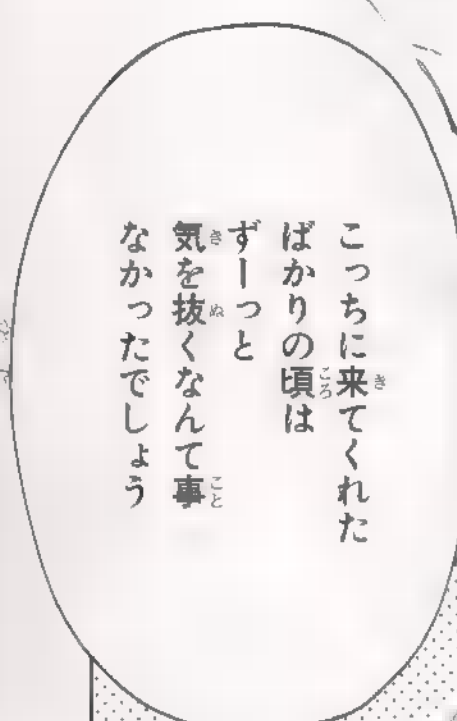 こっちに来てくれた
ばかりの頃は
ずーっと
気を抜くなんて事
なかったでしょう